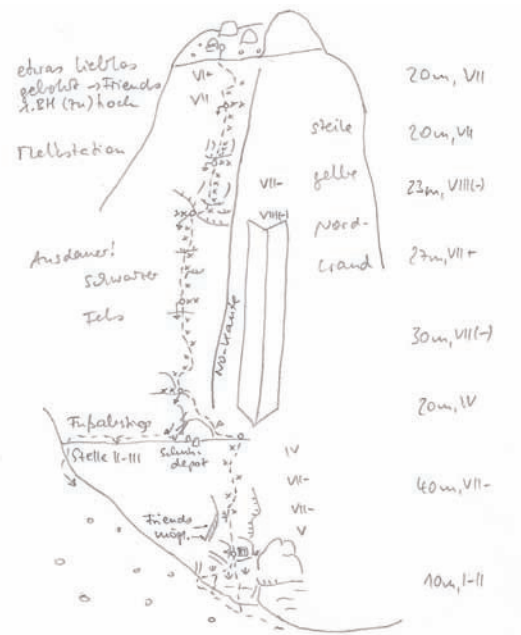 etwas lieblos
gebohrt → Friends
1. BH (zu) hoch
Melkstation
Ausdauer!
schwarzer
Fels
Fußabstieg
Stelle II-III
Schuh-
depot
Friends
mögl.
VI+
VII
VII-
VIII(-)
steile
gelbe
Nord-
wand
NO-Kante
IV
VII-
VII-
V
20m, VII
20m, VII
23m, VIII(-)
27m, VII+
30m, VII(-)
20m, IV
40m, VII-
10m, I-II